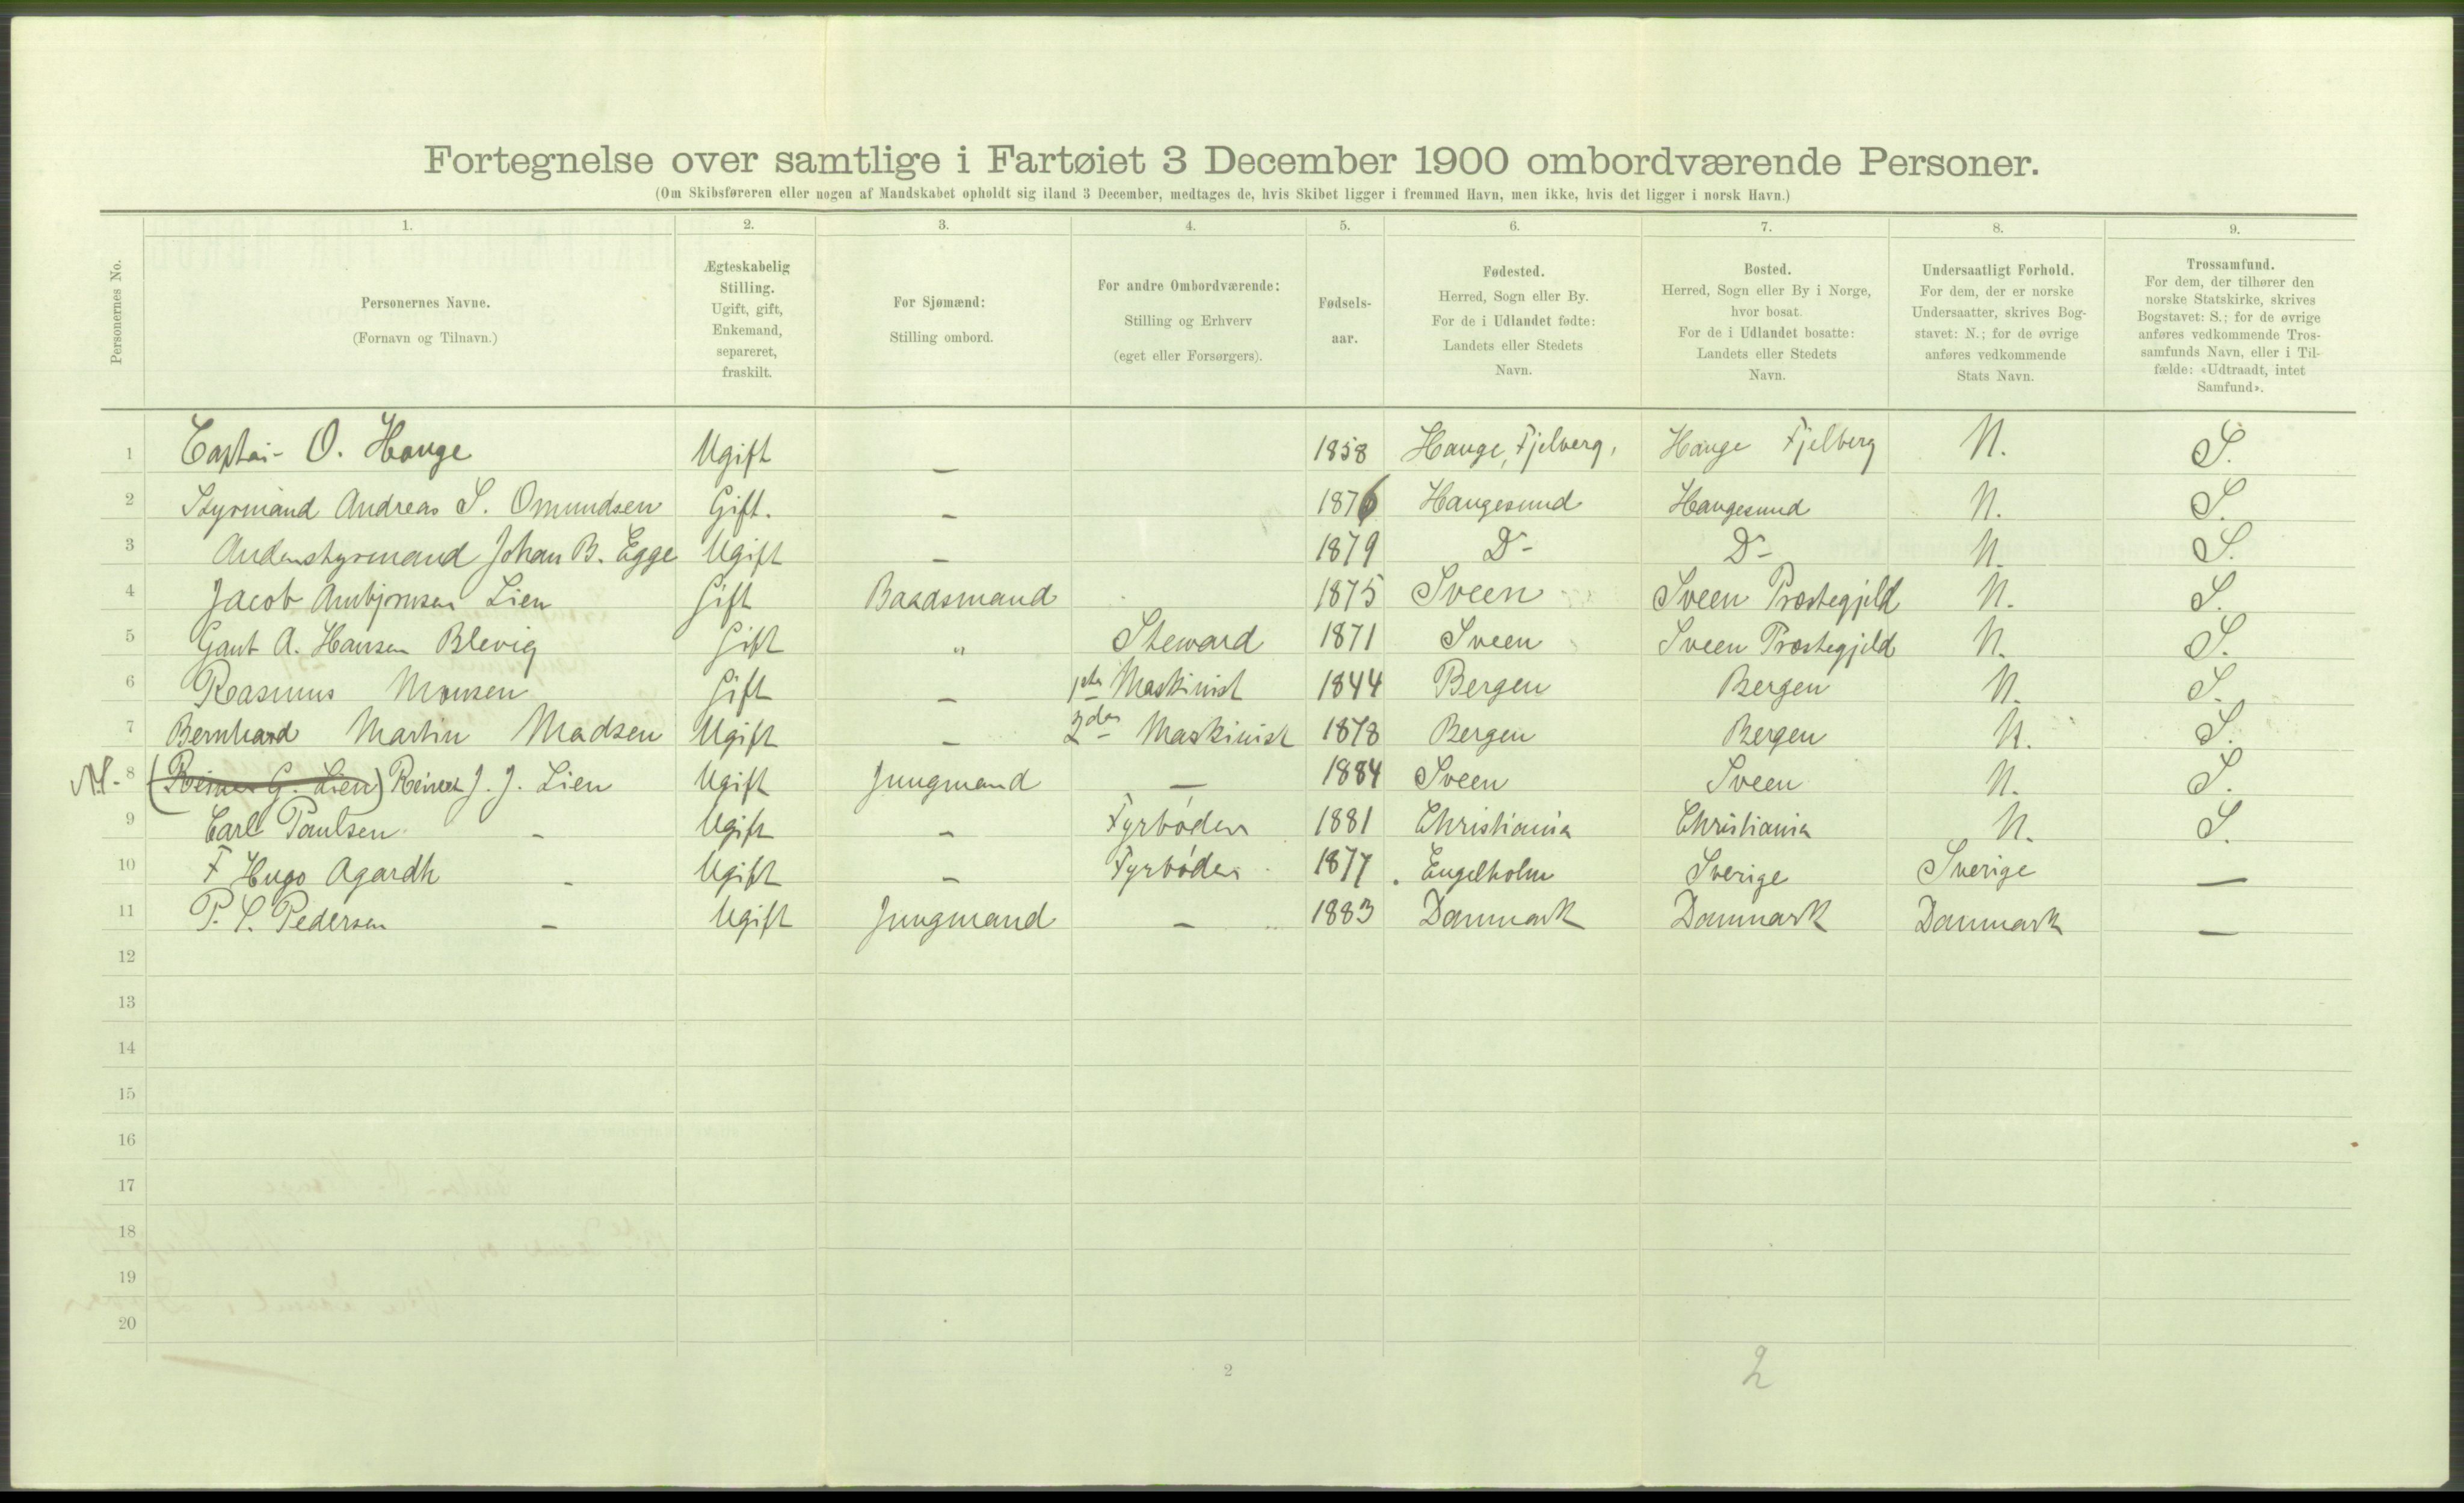 Fortegnelse over samtlige i Fartøiet 3 December 1900 ombordværende Personer.
(Om Skibsføreren eller nogen af Mandskabet opholdt sig iland 3 December, medtages de, hvis Skibet ligger i fremmed Havn, men ikke, hvis det ligger i norsk Havn.)
Personernes No.
1.
Personernes Navne.
(Fornavn og Tilnavn.)
2.
Ægteskabelig
Stilling.
Ugift, gift,
Enkemand,
separeret,
fraskilt.
3.
For Sjømænd:
Stilling ombord.
4.
For andre Ombordværende:
Stilling og Erhverv
(eget eller Forsørgers).
5.
Fødsels-
aar.
6.
Fødested.
Herred, Sogn eller By.
For de i Udlandet fødte:
Landets eller Stedets
Navn.
7.
Bosted.
Herred, Sogn eller By i Norge,
hvor bosat.
For de i Udlandet bosatte:
Landets eller Stedets
Navn.
8.
Undersaatligt Forhold.
For dem, der er norske
Undersaatter, skrives Bog-
stavet: N.; for de øvrige
anføres vedkommende
Stats Navn.
9.
Trossamfund.
For dem, der tilhører den
norske Statskirke, skrives
Bogstavet: S.; for de øvrige
anføres vedkommende Tros-
samfunds Navn, eller i Til-
fælde: «Udtraadt, intet
Samfund».
1 Captai- O. Hauge Ugift — 1858 Hauge, Fjelberg, Hauge Fjelberg N. S.
2 Styrmand Andreas S. Omundsen Gift. — 1876 Haugesund Haugesund N. S.
3 Andenstyrmand Johan B. Egge Ugift — 1879 D- D- N. S.
4 Jacob Ambjørnsen Lien Gift Baadsmand 1875 Sveen Sveen Præstegjeld N. S.
5 Gaut A. Hansen Blevig Gift " Steward 1871 Sveen Sveen Præstegjeld N. S.
6 Rasmus Monsen Gift — 1ste Maskinist 1844 Bergen Bergen N. S.
7 Bernhard Martin Madsen Ugift — 2den Maskinist 1878 Bergen Bergen N. S.
8 (Reinert G. Lien) Reinert J. J. Lien Ugift Jungmand — 1884 Sveen Sveen N. S.
9 Carl Paulsen — Ugift — Fyrbøder 1881 Christiania Christiania N. S.
10 F Hugo Agardh — Ugift — Fyrbøder 1877 Engelholm Sverige Sverige —
11 P. S. Pedersen — Ugift Jungmand — 1883 Danmark Danmark Danmark —
12
13
14
15
16
17
18
19
20
2
2